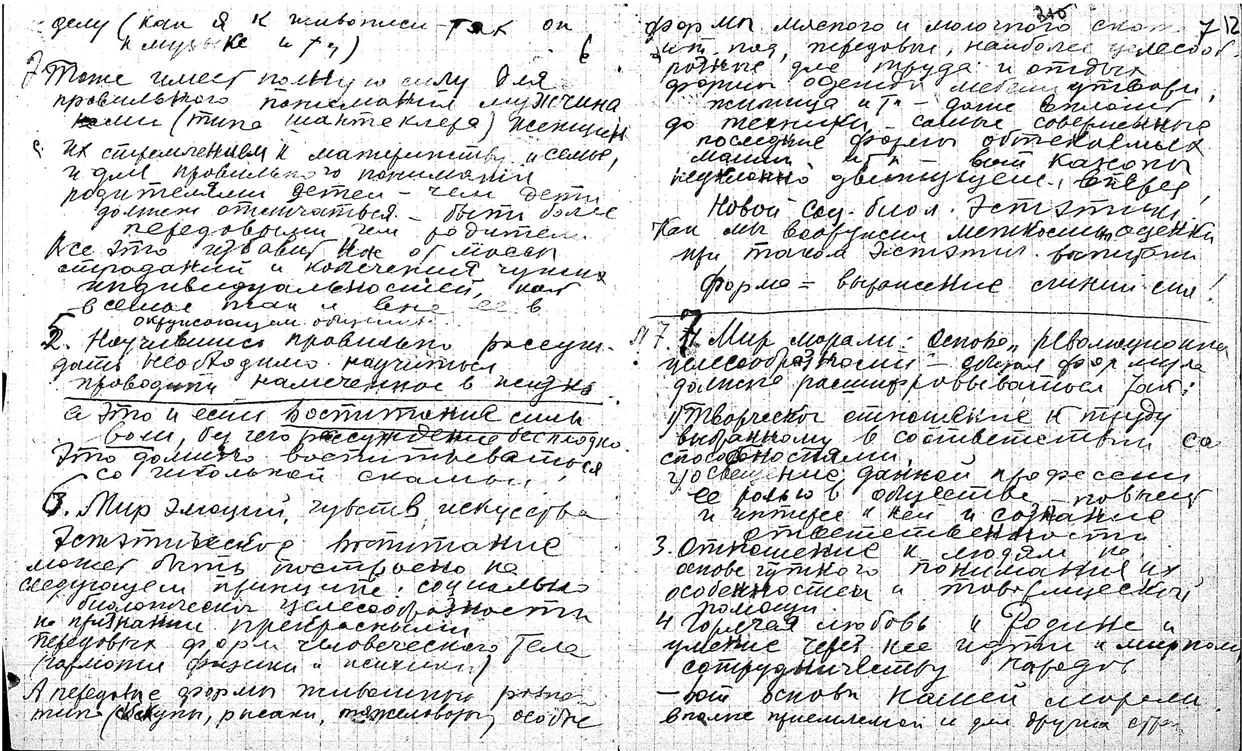 делу (как я к живописи – так он
к музыке и тд)
6
Тоже имеет полную силу для
правильного понимания мужчина
ми (типа шантеклера) женщин
с их стремлением к материнству и семье,
и для правильного понимания
родителями детей – чем дети
должны отличаться – быть более
передовыми чем родители
Все это избавит нас от массы
страданий и калечения чужих
индивидуальностей, как
в семье так и вне ее в
окружающем обществе.
2. Научившись правильно рассуж-
дать необходимо научиться
проводить намеченное в жизнь
а это и есть воспитание силы
воли, без чего рассуждение бесплодно.
Это должно воспитываться
со школьной скамьи!
6. Мир эмоций, чувств, искусства
Эстетическое воспитание
может быть построено на
следующем принципе: социально
биологической целесообразности
на признании прекрасными
передовых форм человеческого тела
(гармонии физики и психики)
А передовые формы животных разно
типа (скакуны, рысаки, тяжеловозы) особые
7/2
формы мясного и молочного скота
и т. под, передовые, наиболее целесооб-
разные для труда и отдыха
формы одежды мебели утвари,
жилища и т – даже вплоть
до техники – самые совершенные
последние формы обтекаемых
машин – вот каноны
неуклонно движущейся вперед
новой соц. биол. эстетики!
Как мы вооружим меткостью оценки
при таком эстетич. воспитании
форма = выражение сил!
7. Мир морали. Основа „революционная
целесообразность – формула
должна расшифровываться так:
1) Творческое отношение к труду
выбранному в соответствии со
способностями.
2) освещение данной профессии
ее ролью в обществе – повысит
и интерес к ней и сознание
ответственности
3. Отношение к людям на
основе чуткого понимания их
особенностей и товарищеской
помощи.
4 Горячая любовь к Родине и
умение через нее идти к мирному
сотрудничеству народов
– вот основы нашей морали.
вполне приемлемой и для других стр